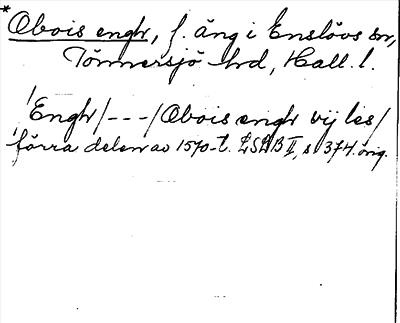 * Obois engr, f. äng i Enslövs sn,
Tönnersjö hd, Hall. l.
/Engr/---/Obois engr vij les/
förra delen av 1570-t. LSDB II, s 374. orig.